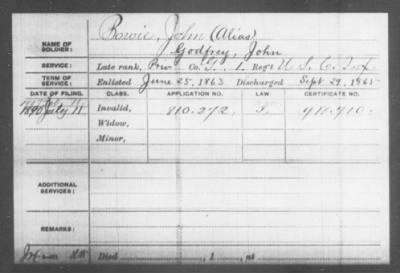 NAME OF SOLDIER: Bowie, John (Alias)
Godfrey, John
SERVICE: Late rank, Co. G, 1, Reg't U. S. C. Inf.
TERM OF SERVICE: Enlisted June 25, 1863 Discharged Sept 29, 1865
DATE OF FILING. CLASS. APPLICATION NO. LAW. CERTIFICATE NO.
1890 July 11 Invalid, 810.272 918.910.
Widow,
Minor,
ADDITIONAL SERVICES:
REMARKS:
Died , 1 , at